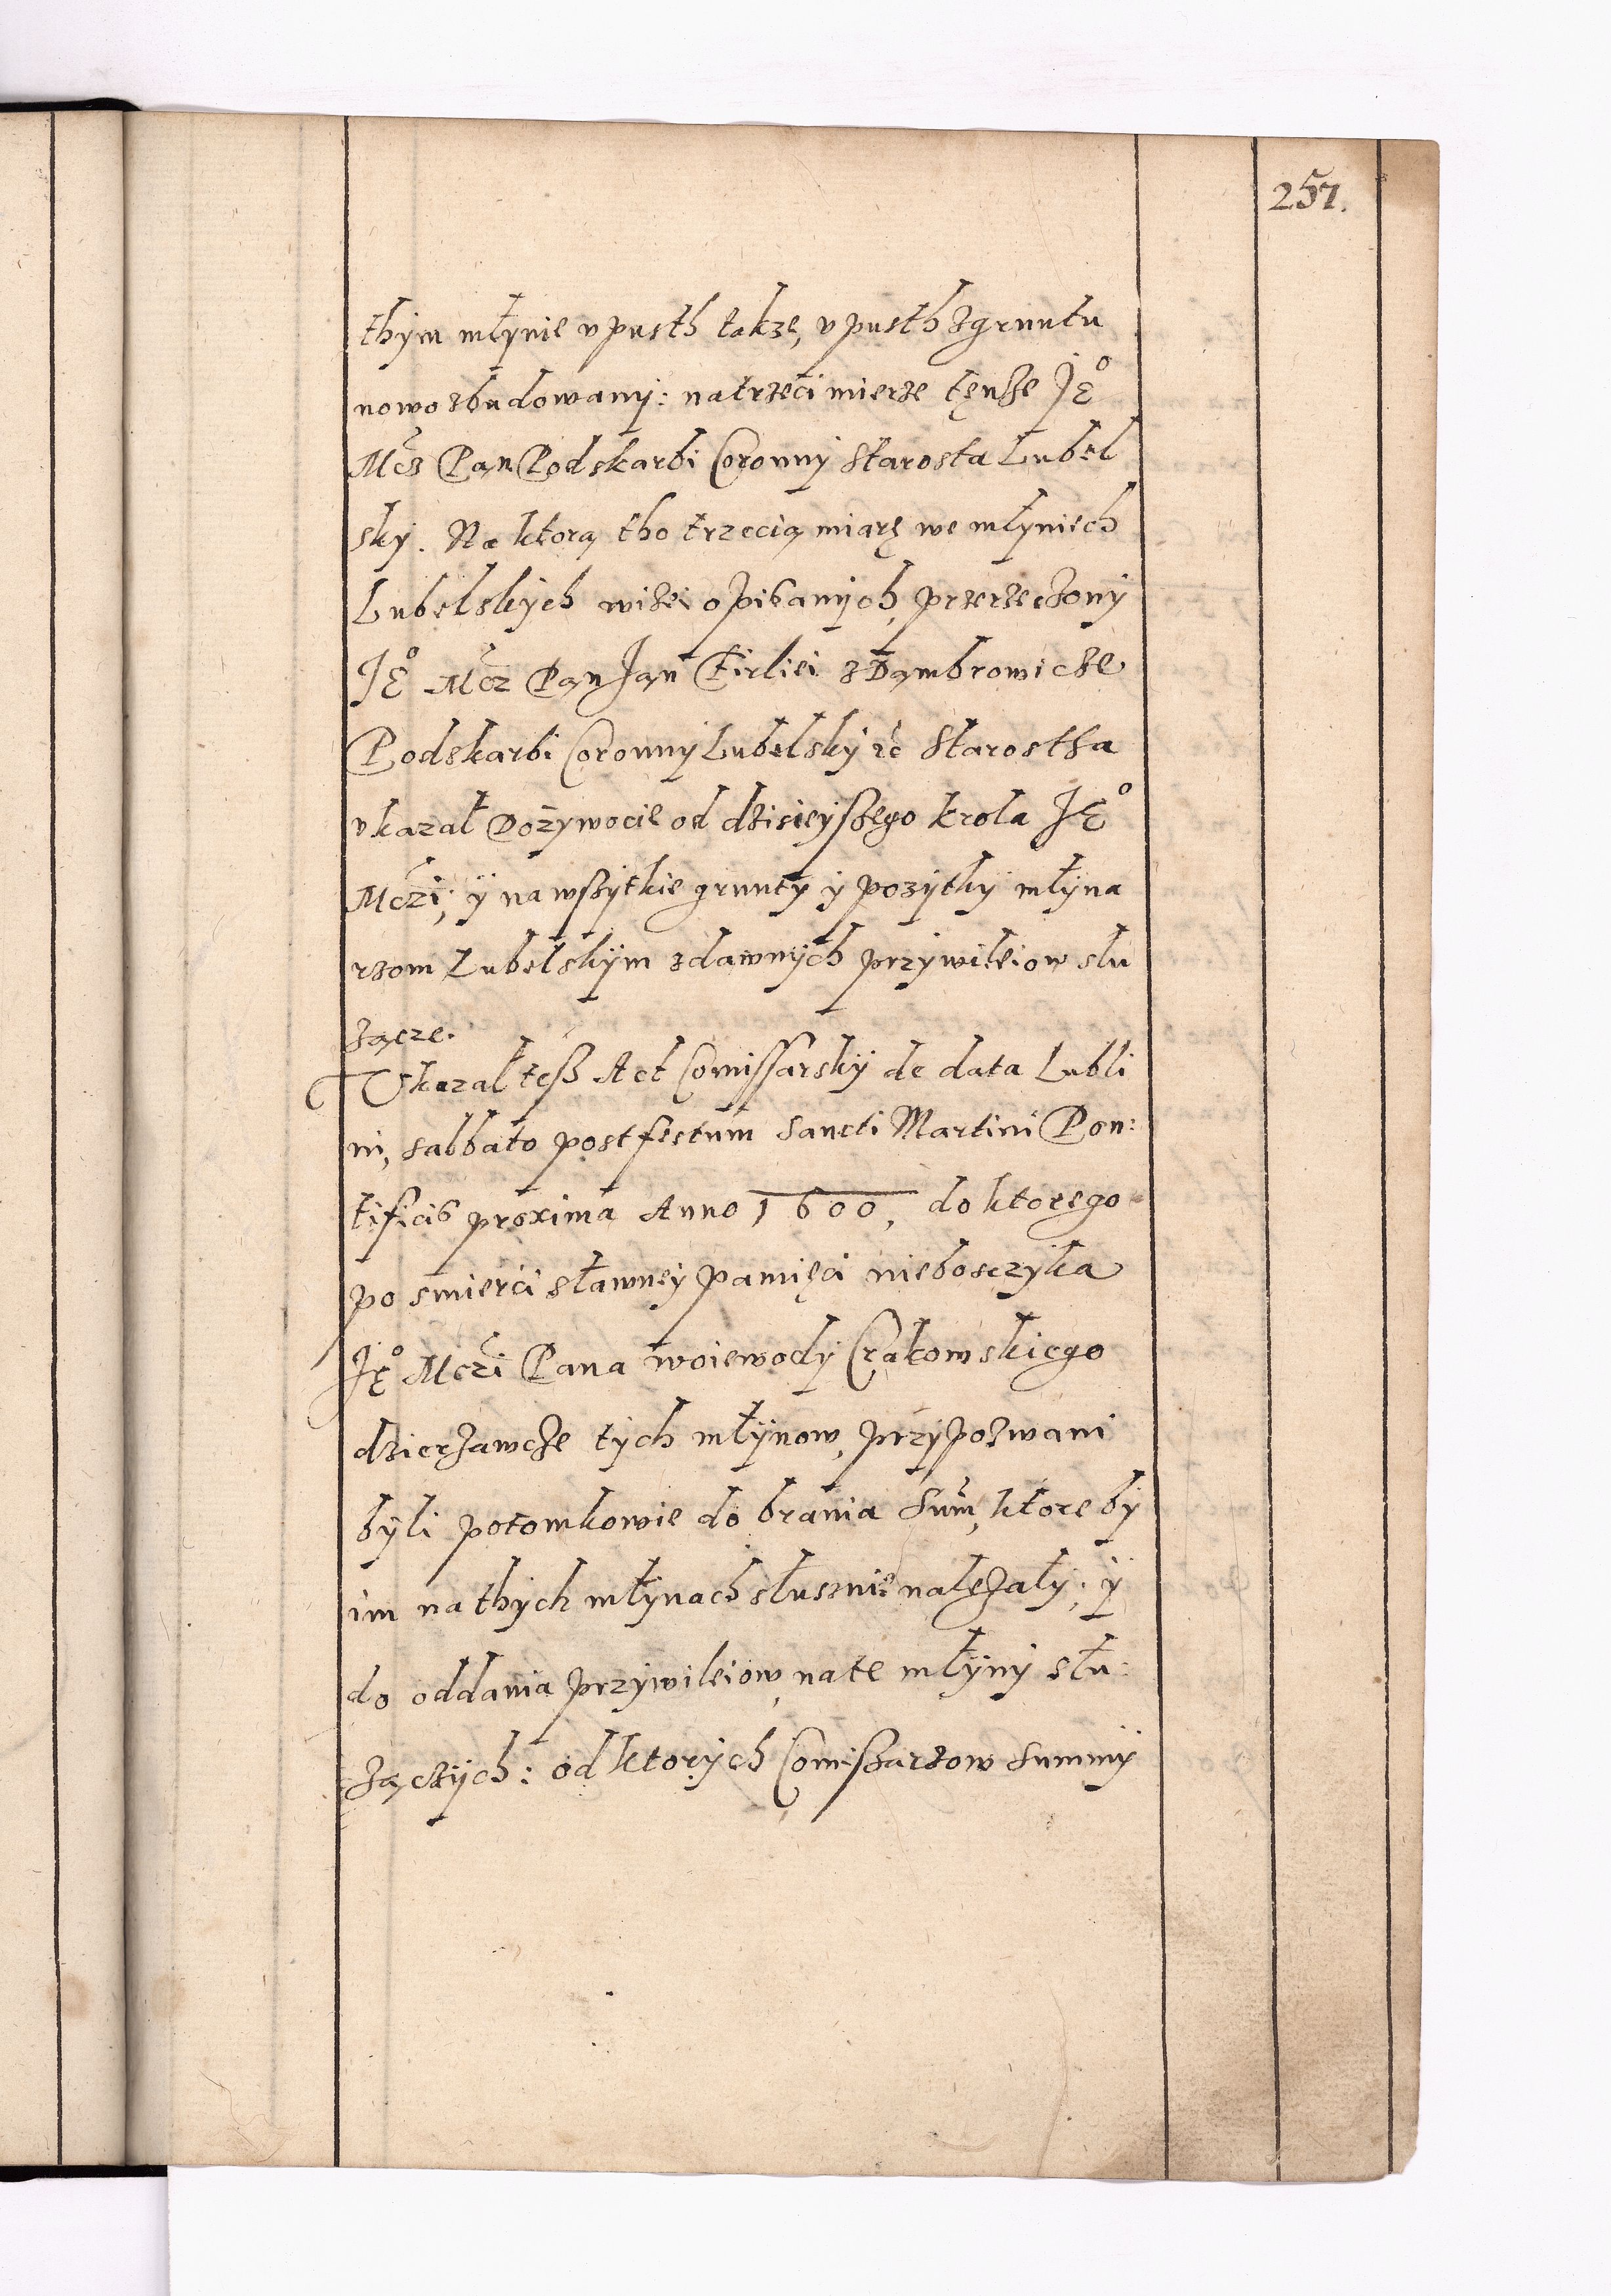 257.
thym młynie vpusth także, vpusth zgruntu
nowo zbudowany: natrzeci mierze tęnże Je°
Mcz Pan Podskarbi Coronny Starosta Lubel
sky. Na ktorą tho trzecią miarę we młyniech
Lubelskych wizei opisanych, przerzeczony
Je° Mcz Pan Jan Firliei z Dąmbrowicze
Podskarbi Coronny Lubelsky etc Starostha
vkazał Dożywocie od dzisieyszego krola Je°
Mczi; ÿ na wszytkie grunty ÿ pozytky młyna
rzom Lubelskÿm zdawnych przywileiow słu
żącze.
Vkazał tesz Act Comissarskÿ de data Lubli
ni, sabbato post festum Sancti Martini Pon:
tificis proxima Anno 1600, do ktorego
po smierci sławney pamięci nieboszczyka
Je° Mczi Pana woiewody Crakowskiego
dzierżawcze tych młÿnow, przypozwani
byli potomkowie do brania Sum, ktore by
im na thych młynach słusznie należały; ÿ
do oddania przywileiow na te młÿny słu:
żączÿch: od ktorych Comiszarzow Summÿ